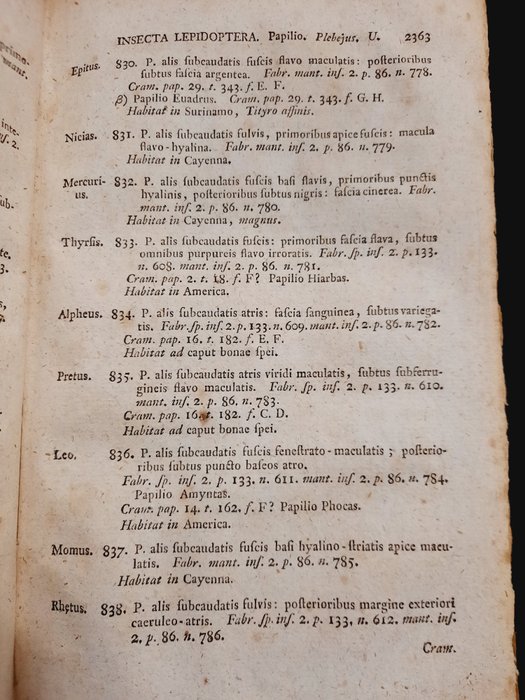 INSECTA LEPIDOPTERA. Papilio. Plebejus. U. 2363
Epitus. 830. P. alis ſubcaudatis fuſcis flavo maculatis: poſterioribus
ſubtus faſcia argentea. Fabr. mant. inſ. 2. p. 86. n. 778.
Cram. pap. 29. t. 343. f. E. F.
β) Papilio Euadrus. Cram. pap. 29. t. 343. f. G. H.
Habitat in Surinamo, Tityro affinis.
Nicias. 831. P. alis ſubcaudatis fulvis, primoribus apice fuſcis: macula
flavo-hyalina. Fabr. mant. inſ. 2. p. 86. n. 779.
Habitat in Cayenna.
Mercuri- 832. P. alis ſubcaudatis fuſcis baſi flavis, primoribus punctis
us. hyalinis, poſterioribus ſubtus nigris: faſcia cinerea. Fabr.
mant. inſ. 2. p. 86. n. 780.
Habitat in Cayenna, magnus.
Thyrſis. 833. P. alis ſubcaudatis fuſcis: primoribus faſcia flava, ſubtus
omnibus purpureis flavo irroratis. Fabr. ſp. inſ. 2. p. 133.
n. 608. mant. inſ. 2. p. 86. n. 781.
Cram. pap. 2. t. 18. f. F? Papilio Hiarbas.
Habitat in America.
Alpheus. 834. P. alis ſubcaudatis atris: faſcia ſanguinea, ſubtus variega-
tis. Fabr. ſp. inſ. 2. p. 133. n. 609. mant. inſ. 2. p. 86. n. 782.
Cram. pap. 16. t. 182. f. E. F.
Habitat ad caput bonae ſpei.
Pretus. 835. P. alis ſubcaudatis atris viridi maculatis, ſubtus ſubferru-
gineis flavo maculatis. Fabr. ſp. inſ. 2. p. 133. n. 610.
mant. inſ. 2. p. 86. n. 783.
Cram. pap. 16. t. 182. f. C. D.
Habitat ad caput bonae ſpei.
Leo. 836. P. alis ſubcaudatis fuſcis feneſtrato-maculatis; poſterio-
ribus ſubtus puncto baſeos atro.
Fabr. ſp. inſ. 2. p. 133. n. 611. mant. inſ. 2. p. 86. n. 784.
Papilio Amyntas.
Cram. pap. 14. t. 162. f. F? Papilio Phocas.
Habitat in America.
Momus. 837. P. alis ſubcaudatis fuſcis baſi hyalino-ſtriatis apice macu-
latis. Fabr. mant. inſ. 2. p. 86. n. 785.
Habitat in Cayenna.
Rhetus. 838. P. alis ſubcaudatis fulvis: poſterioribus margine exteriori
caeruleo-atris. Fabr. ſp. inſ. 2. p. 133. n. 612. mant. inſ.
2. p. 86. n. 786.
Cram.